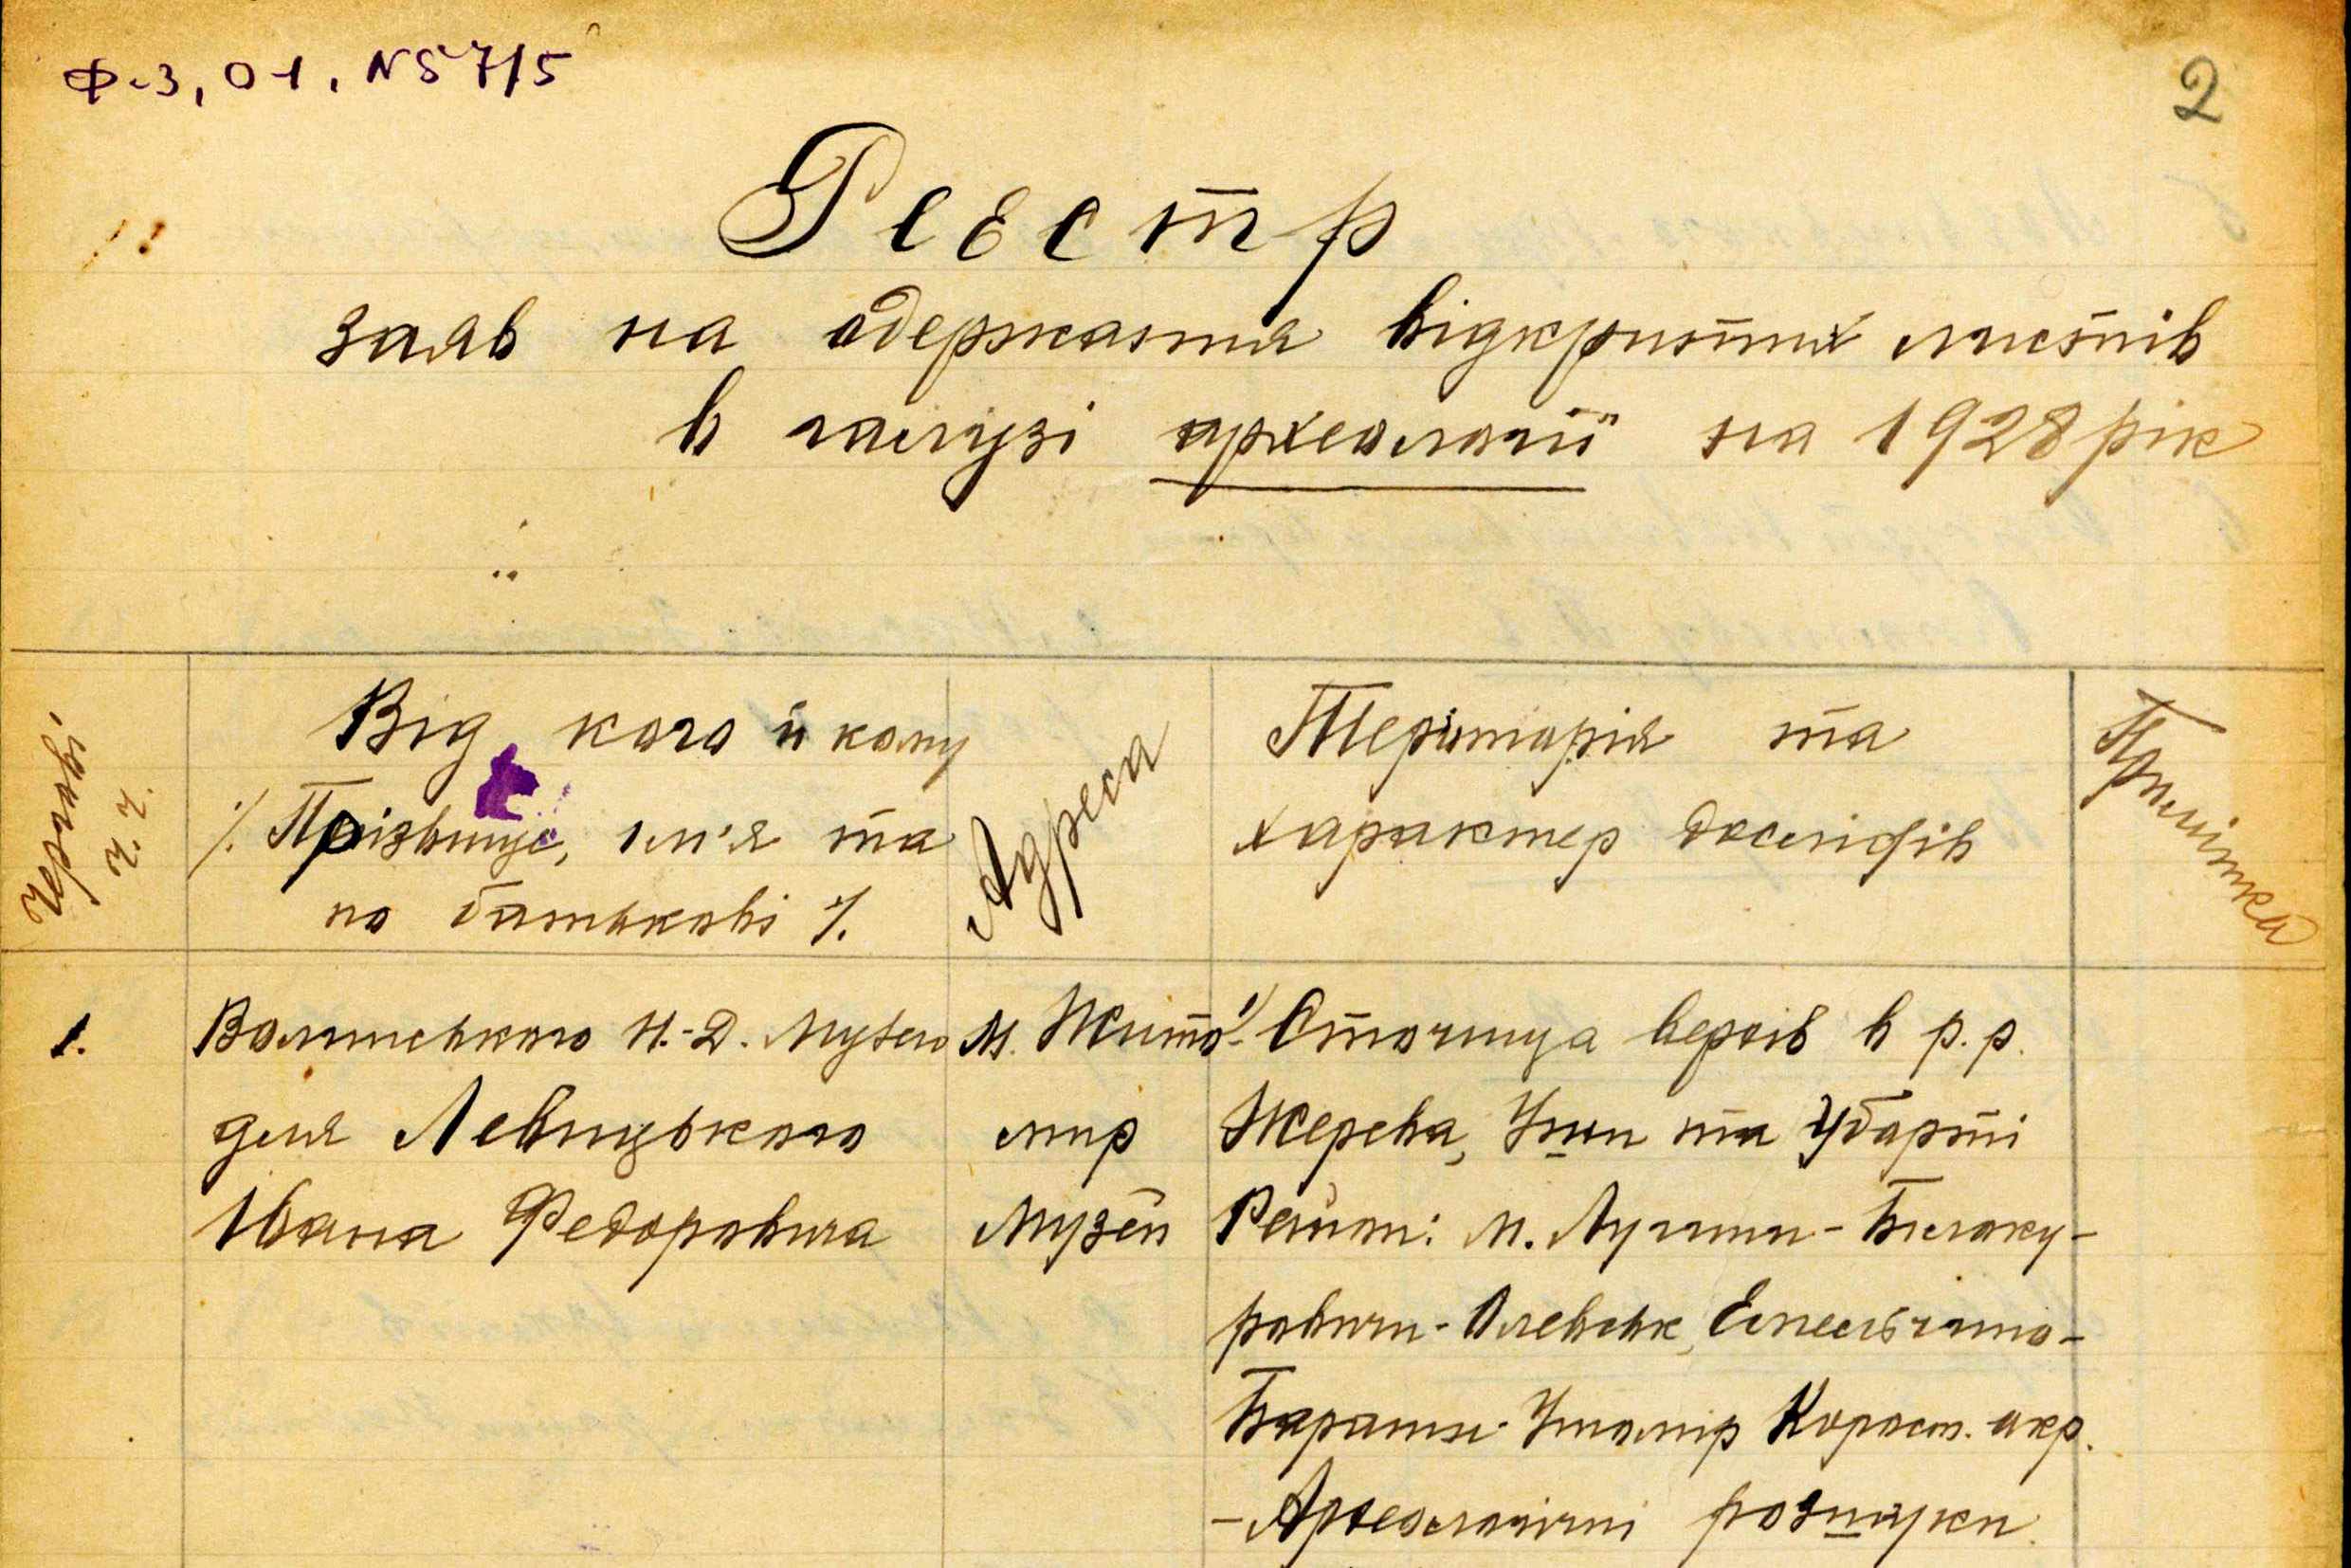 Ф-3, О-1, № 57/5
2
Реєстр
заяв на одержання відкритих листів
в галузі археології на 1928 рік
Чергов.
ч. ч.
Від кого й кому
/. Прізвище, ім'я та
по батькові /.
Адреса
Територія та
характер дослідів
Примітка
1.
Волинського Н.-Д. Музею
для Левицького
Івана Федоровича
м. Жито-
мир
Музей
1/ Сточища верхів в р. р.
Жерева, Уши та Уборті
Район: м. Лугини - Білоку-
ровичи - Олевськ, Емельчино-
Бараши - Ушомір Корост. окр.
- Археологічні розшуки